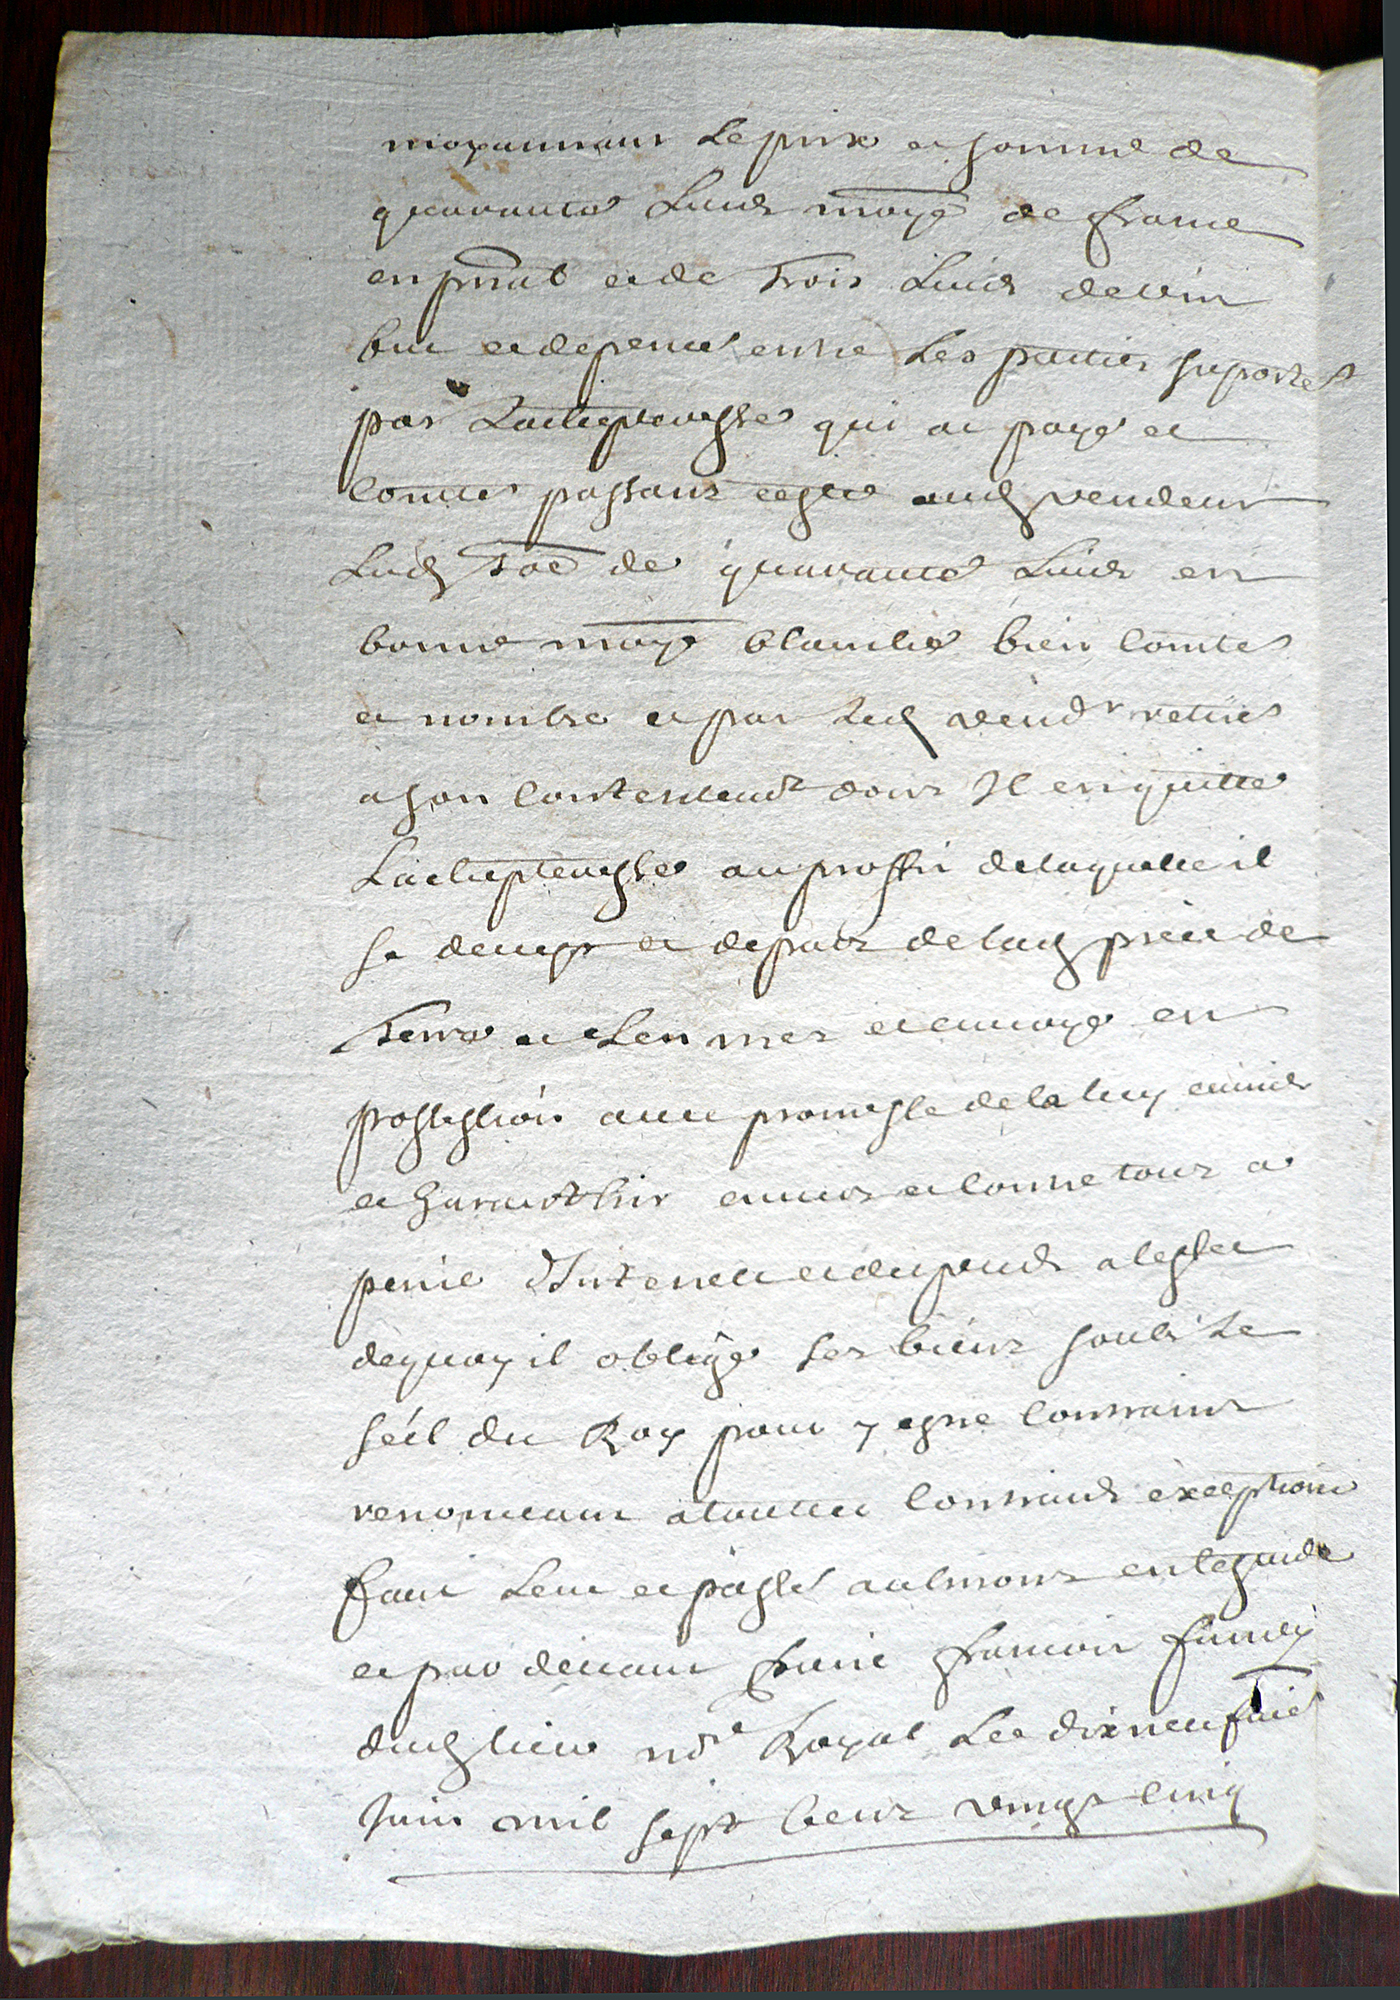 moyennant le prix et somme de
quarante livres monoye de france
en prnal et de trois livres de vin
bue et depence entre les parties suporte
par Lachepteresse qui a payé et
comte passant cestes aud vendeur
Lad some de quarante livres en
bonne monoye blanche bien comte
et nombre et par led vendr retire
a son contentemt dont Il en quitte
Lachepteresse au proffit de laquelle il
se demest et depart de lad piece de
Terre et len met et envoye en
possession avec promesse de la luy
et garantir envers et contre tous a
peine dInterest et depends a leffet
dequoy il oblige ses biens soub le
séel du Roy pour y estre contraint
renonceant a toutes contraires exceptions
fait leu et passé
et par devant francois
dud lieu nore Royal Le dixneufvie
Juin mil sept cent vingt cinq